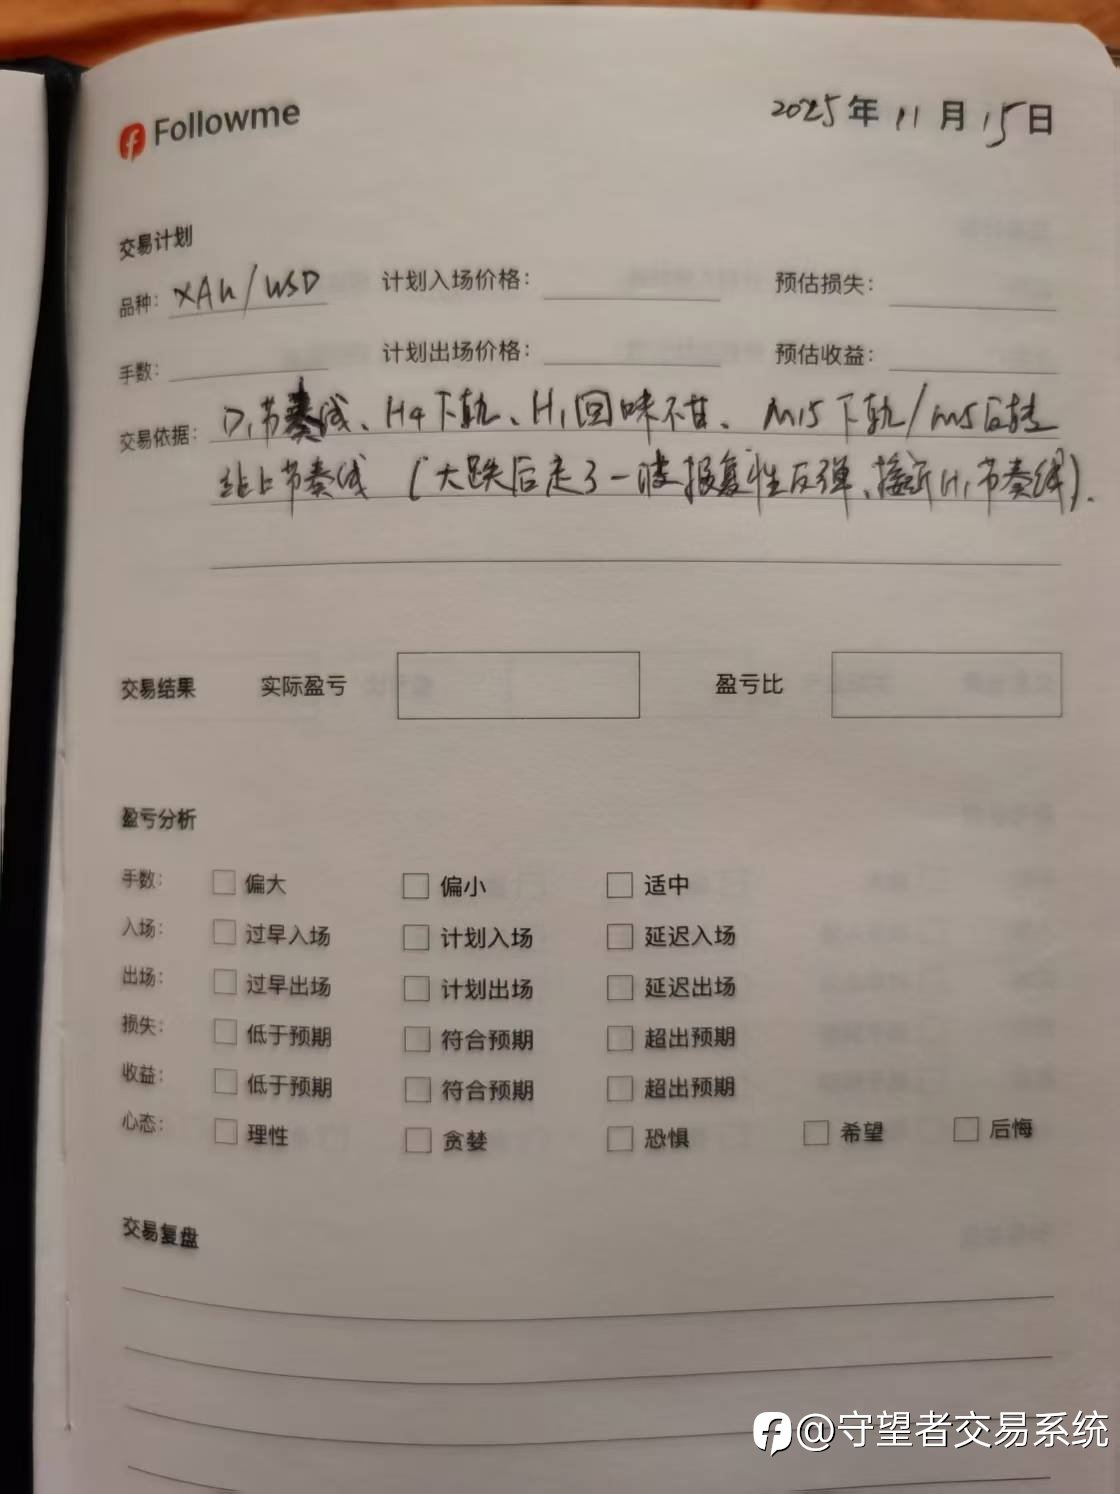 Followme
2025年11月15日
交易计划
品种: XAU/USD 计划入场价格: 预估损失:
手数: 计划出场价格: 预估收益:
交易依据: D1节奏线、H4下轨、H1回味不甘、M15下轨/M5反转
站上节奏线(大跌后走了一波报复性反弹、接近H1节奏线).
交易结果 实际盈亏 盈亏比
盈亏分析
手数: 偏大 偏小 适中
入场: 过早入场 计划入场 延迟入场
出场: 过早出场 计划出场 延迟出场
损失: 低于预期 符合预期 超出预期
收益: 低于预期 符合预期 超出预期
心态: 理性 贪婪 恐惧 希望 后悔
交易复盘
@守望者交易系统